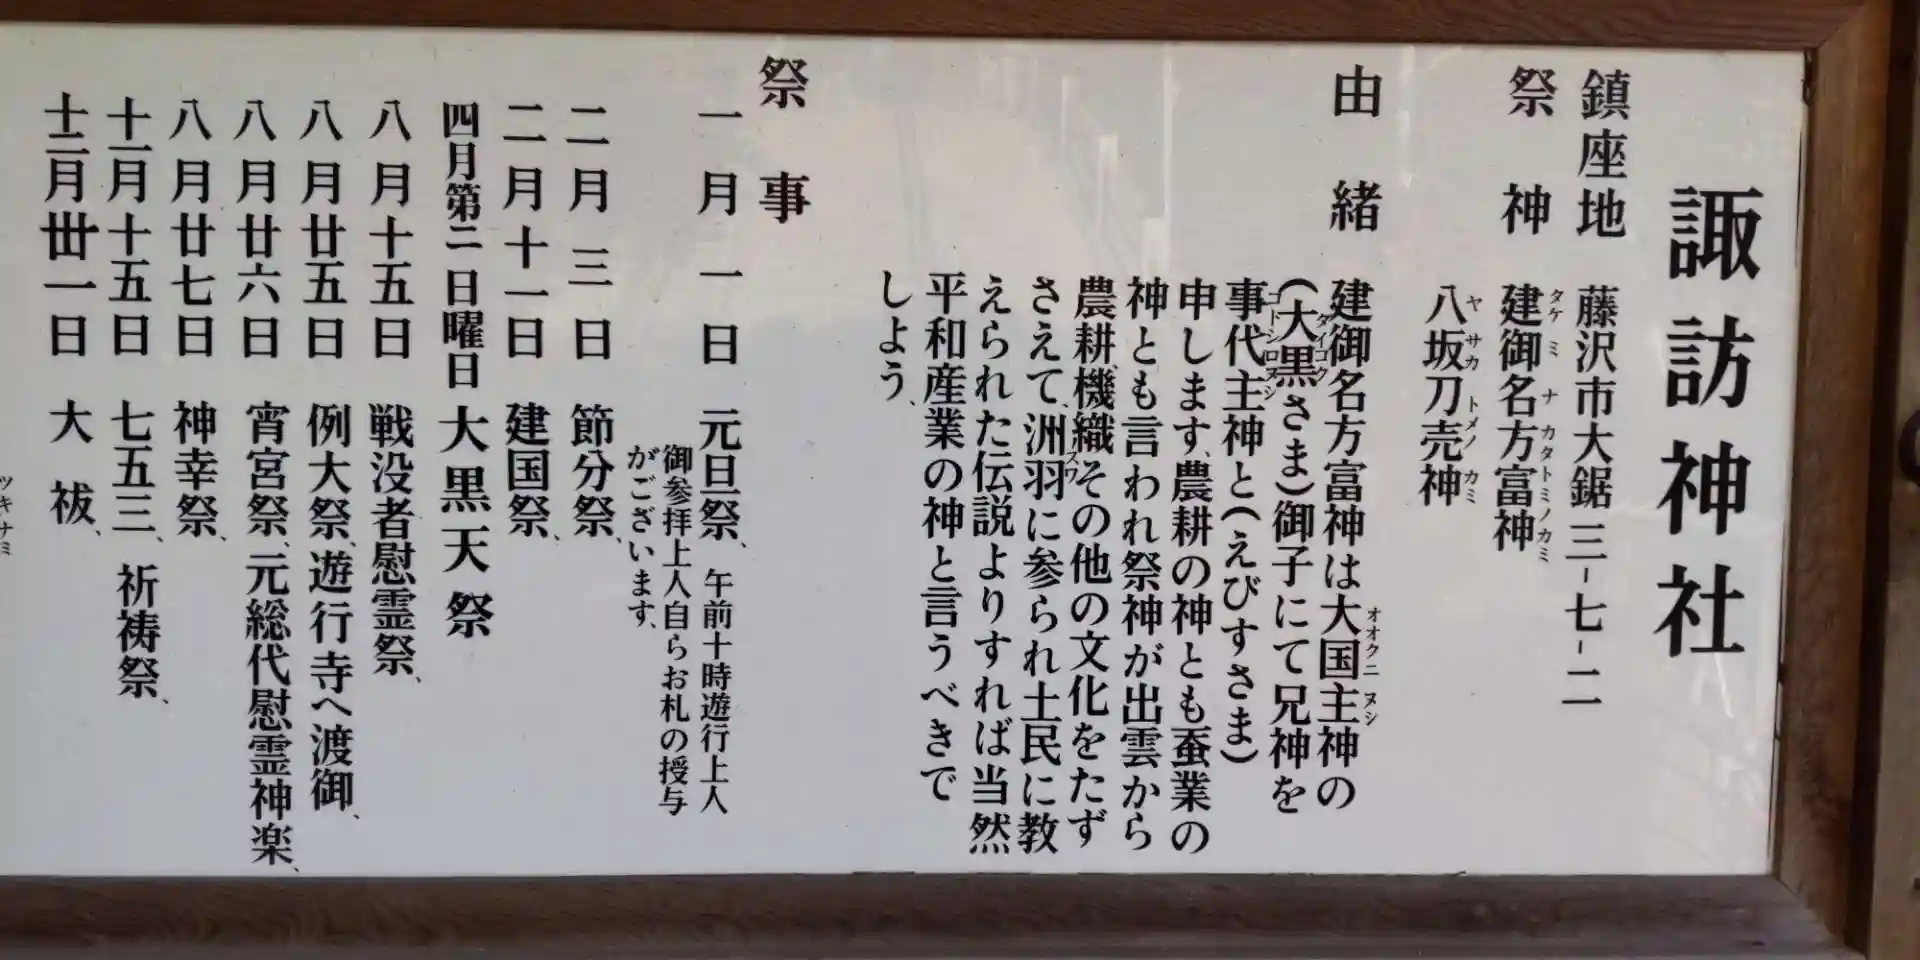 諏訪神社
鎮座地 藤沢市大鋸三-七-二
祭神 建御名方富神
タケミナカタトミノカミ
八坂刀売神
ヤサカトメノカミ
由緒 建御名方富神は大国主神の
オオクニヌシ
(大黒さま)御子にて兄神を
ダイコク
事代主神と(えびすさま)
コトシロヌシ
申します、農耕の神とも蚕業の
神とも言われ祭神が出雲から
農耕、機織その他の文化をたず
さえて、洲羽に参られ土民に教
スワ
えられた伝説よりすれば当然
平和産業の神と言うべきで
しよう、
祭事
一月一日 元旦祭、午前十時遊行上人
御参拝上人自らお札の授与
がございます、
二月三日 節分祭、
二月十一日 建国祭、
四月第二日曜日 大黒天祭
八月十五日 戦没者慰霊祭、
八月廿五日 例大祭、遊行寺へ渡御、
八月廿六日 宵宮祭、元総代慰霊神楽、
八月廿七日 神幸祭、
十一月十五日 七五三、祈祷祭、
十二月丗一日 大祓、
ツキナミ